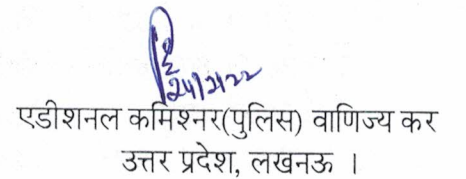 एडीशनल कमिश्नर(पुलिस) वाणिज्य कर
उत्तर प्रदेश, लखनऊ ।